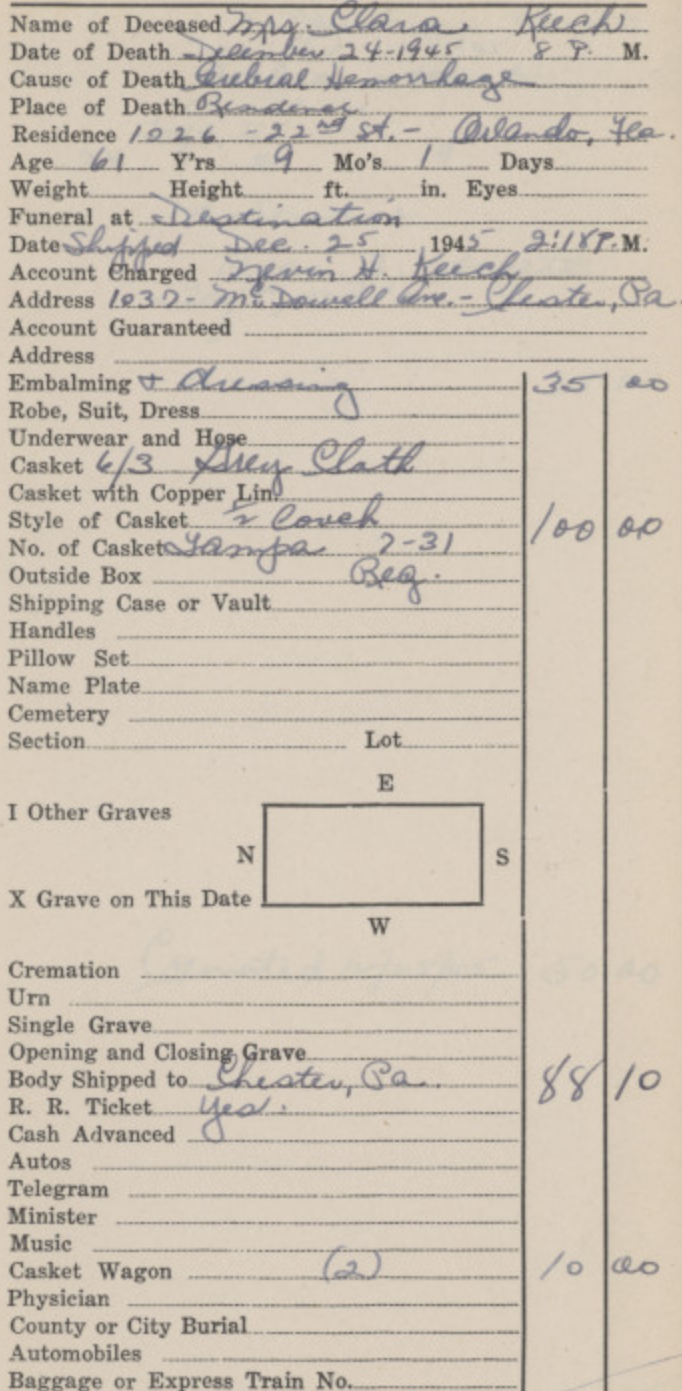 Name of Deceased Mrs. Clara Keech
Date of Death December 24-1945 8 P. M.
Cause of Death Cerebral Hemorrhage
Place of Death Residence
Residence 1026 - 22nd St. - Orlando, Fla.
Age 61 Y'rs 9 Mo's 1 Days
Weight Height ft. in. Eyes
Funeral at Destination
Date Shipped Dec. 25 1945 2:18 P. M.
Account Charged Nevin H. Keech
Address 1037 - McDowell Ave. - Chester, Pa.
Account Guaranteed
Address
Embalming & dressing 35 00
Robe, Suit, Dress
Underwear and Hose
Casket 6/3 Grey Cloth
Casket with Copper Lin.
Style of Casket 1/2 Couch 100 00
No. of Casket Tampa 7-31
Outside Box Reg.
Shipping Case or Vault
Handles
Pillow Set
Name Plate
Cemetery
Section Lot
E
I Other Graves
N S
X Grave on This Date
W
Cremation
Urn
Single Grave
Opening and Closing Grave
Body Shipped to Chester, Pa. 88 10
R. R. Ticket yes.
Cash Advanced
Autos
Telegram
Minister
Music
Casket Wagon (2) 10 00
Physician
County or City Burial
Automobiles
Baggage or Express Train No.